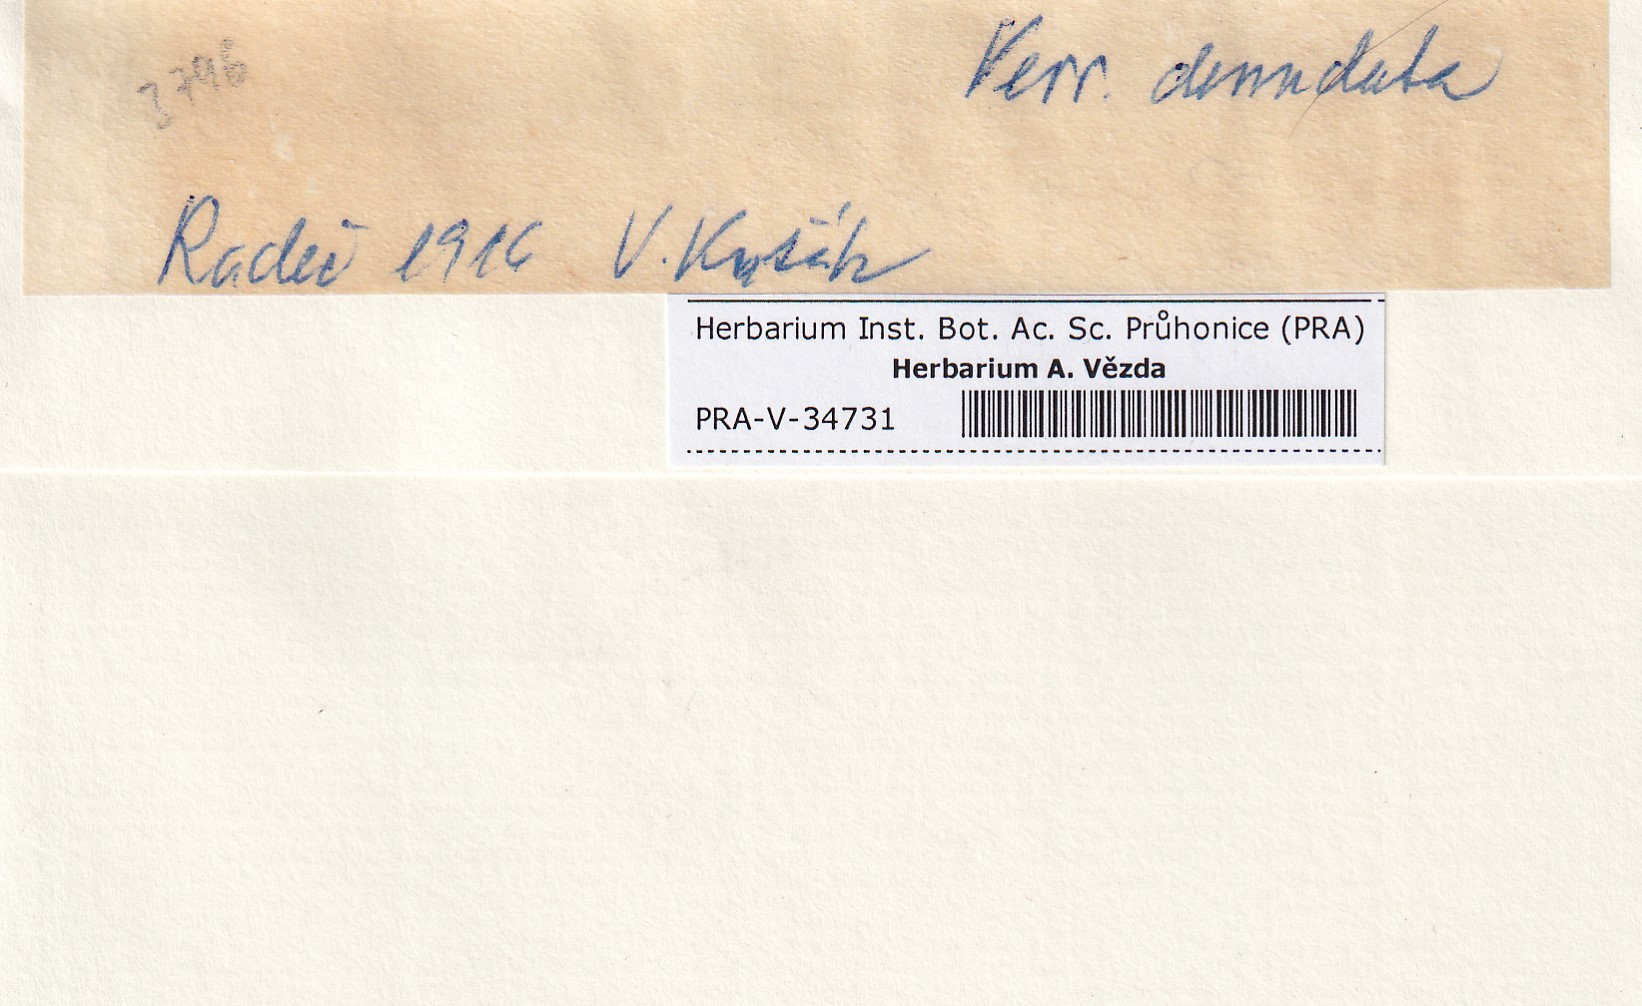 3796
Verr. denudata
Radeč 1916 V. Kuťák
Herbarium Inst. Bot. Ac. Sc. Průhonice (PRA)
Herbarium A. Vězda
PRA-V-34731